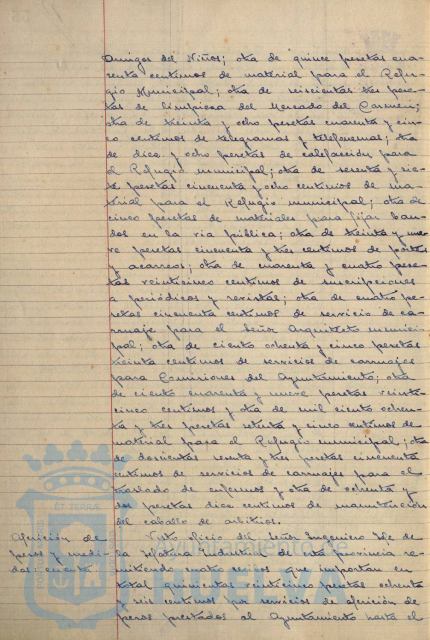 Amigos del Niños; otra de quince pesetas cua-
renta centimos de material para el Refu-
gio Municipal; otra de seiscientas tres pese-
tas de limpieza del Mercado del Carmen;
otra de treinta y ocho pesetas cuarenta y cin-
co centimos de telegramas y telefonemas; otra
de diez y ocho pesetas de calefacción para
el Refugio municipal; otra de setenta y sie-
te pesetas cincuenta y ocho centimos de ma-
terial para el Refugio municipal; otra de
cinco pesetas de materiales para fijar ban-
dos en la via pública; otra de treinta y nue-
ve pesetas cincuenta y tres centimos de portes
y acarreos; otra de cuarenta y cuatro pese-
tas veinticinco centimos de suscripciones
a periódicos y revistas; otra de cuatro pe-
setas cincuenta centimos de servicio de ca-
rruaje para el Señor Arquitecto munici-
pal; otra de ciento ochenta y cinco pesetas
treinta centimos de servicios de carruajes
para Comisiones del Ayuntamiento; otra
de ciento cuarenta y nueve pesetas veinti-
cinco centimos y otra de mil ciento ochen-
ta y tres pesetas setenta y cinco centimos de
material para el Refugio municipal; otra
de doscientas y tres pesetas cincuenta
centimos de servicios de carruajes para el
traslado de enfermos y otra de ochenta y
dos pesetas diez centimos de manutención
del caballo de arbitrios.
Afericion de
pesas y medi-
das: cuenta.
Visto oficio del Señor Ingeniero Jefe de
la Jefatura Industrial de esta provincia re-
mitiendo cuatro que importan en
total quinientas veinticinco pesetas ochenta
y seis centimos por servicios de afericion de
pesas prestados al Ayuntamiento hasta el
ET TERRÆ
Ayuntamiento de
HUELVA